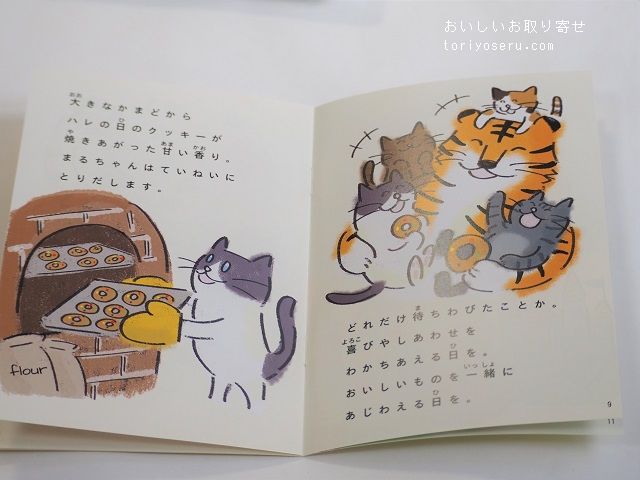 おいしいお取り寄せ
toriyoseru.com
大きなかまどから
ハレの日のクッキーが
焼きあがった甘い香り。
まるちゃんはていねいに
とりだします。
flour
どれだけ待ちわびたことか。
喜びやしあわせを
わかちあえる日を。
おいしいものを一緒に
あじわえる日を。
9
11